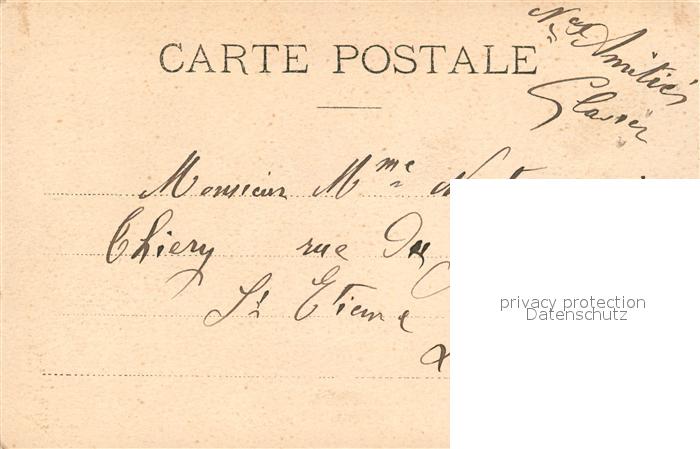 CARTE POSTALE
Amitiés
Monsieur Mme
Thiery rue Du
St Etienne
privacy protection
Datenschutz